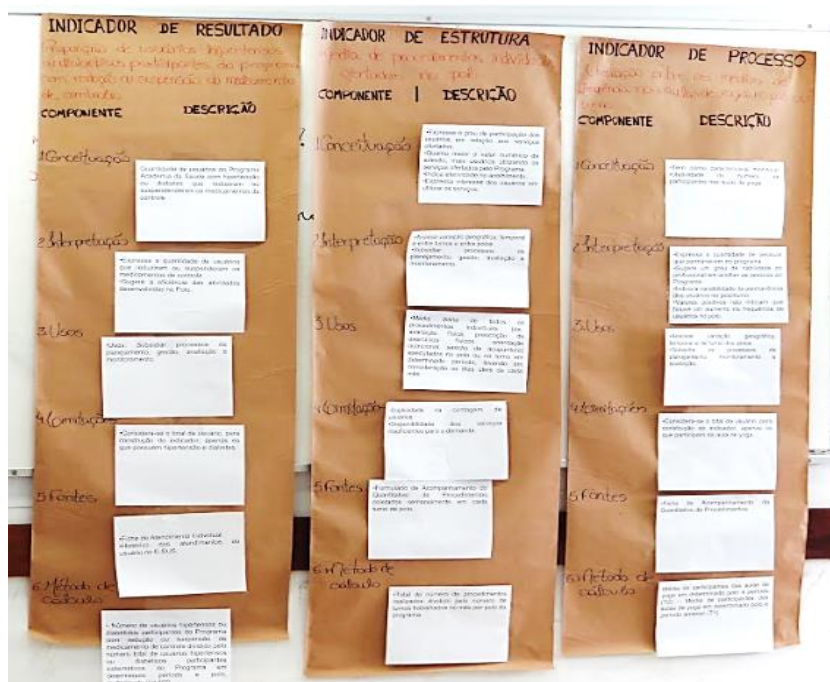 INDICADOR DE RESULTADO
Proporção de usuários hipertensos
participantes do programa
com redação ou suspensão do medicamento
de controle
COMPONENTE DESCRIÇÃO
1.Conceituação
Quantidade de usuários do Programa
Academia da Saúde com hipertensão
ou diabetes que reduziram ou
suspenderam os medicamentos de
controle
2.Interpretação
•Expressa a quantidade de usuários
que reduziram ou suspenderam os
medicamentos de controle.
•Sugere a eficiência das atividades
desenvolvidas no Polo.
3.Usos
•Usos: Subsidiar processos de
planejamento, gestão, avaliação e
monitoramento.
4.Limitações
•Considera-se o total de usuário, para
construção do indicador, apenas os
que possuem hipertensão e diabetes.
5.Fontes
•Ficha de Atendimento Individual.
•Relatório dos atendimentos do
usuário no E-SUS.
6.Método de
cálculo
- Número de usuários hipertensos ou
diabéticos participantes do Programa
com redução ou suspensão de
medicamento de controle dividido pelo
número total de usuários hipertensos
ou diabéticos participantes
sistemáticos do Programa em
determinado período e polo,
INDICADOR DE ESTRUTURA
Média de procedimentos individuais
ofertados no polo
COMPONENTE | DESCRIÇÃO
1.Conceituação
•Expressa o grau de participação dos
usuários em relação aos serviços
ofertados.
•Quanto maior o valor numérico da
média, mais usuários utilizando os
serviços ofertados pelo Programa.
•Indica efetividade no acolhimento.
•Expressa interesse dos usuários em
utilizar os serviços.
2.Interpretação
•Analisar variação geográfica, temporal
e entre turnos e entre polos.
•Subsidiar processos de
planejamento, gestão, avaliação e
monitoramento.
3.Usos
•Média diária de todos os
procedimentos individuais por:
avaliação física, prescrição de
exercícios físicos, orientação
nutricional, sessão de
executados no polo ou no turno em
determinado período, levando em
consideração os dias úteis de cada
mês.
4.Limitações
•Duplicidade na contagem de
usuários.
•Disponibilidade dos serviços
insuficientes para a demanda.
5.Fontes
•Formulário de Acompanhamento do
Quantitativo de Procedimentos
coletados semanalmente em cada
turno do polo.
6.Método de
cálculo
•Total do número de procedimentos
realizados dividido pelo número de
turnos trabalhados no mês por polo do
programa.
INDICADOR DE PROCESSO
COMPONENTE DESCRIÇÃO
1.Conceituação
participantes nas aulas de yoga.
2.Interpretação
•Expressa a quantidade de pessoas
que permanecem no programa.
•Sugere um grau de habilidade do
profissional em acolher as pessoas do
Programa.
•Indica a variabilidade da permanência
dos usuários na
•Valores positivos não indicam que
houve um aumento da frequência de
usuários no polo.
3.Usos
•Analisar variação geográfica,
temporal e de turno dos polos.
•Subsidia os processos de
planejamento, monitoramento e
avaliação.
4.Limitações
•Considera-se o total de usuário para
construção do indicador, apenas os
que participam da aula de yoga.
5.Fontes
•Ficha de Acompanhamento do
Quantitativo de Procedimentos.
6.Método de
cálculo
Média de participantes das aulas de
yoga em determinado polo e período
(T2) - Média de participantes das
aulas de yoga em determinado polo e
período anterior (T1).